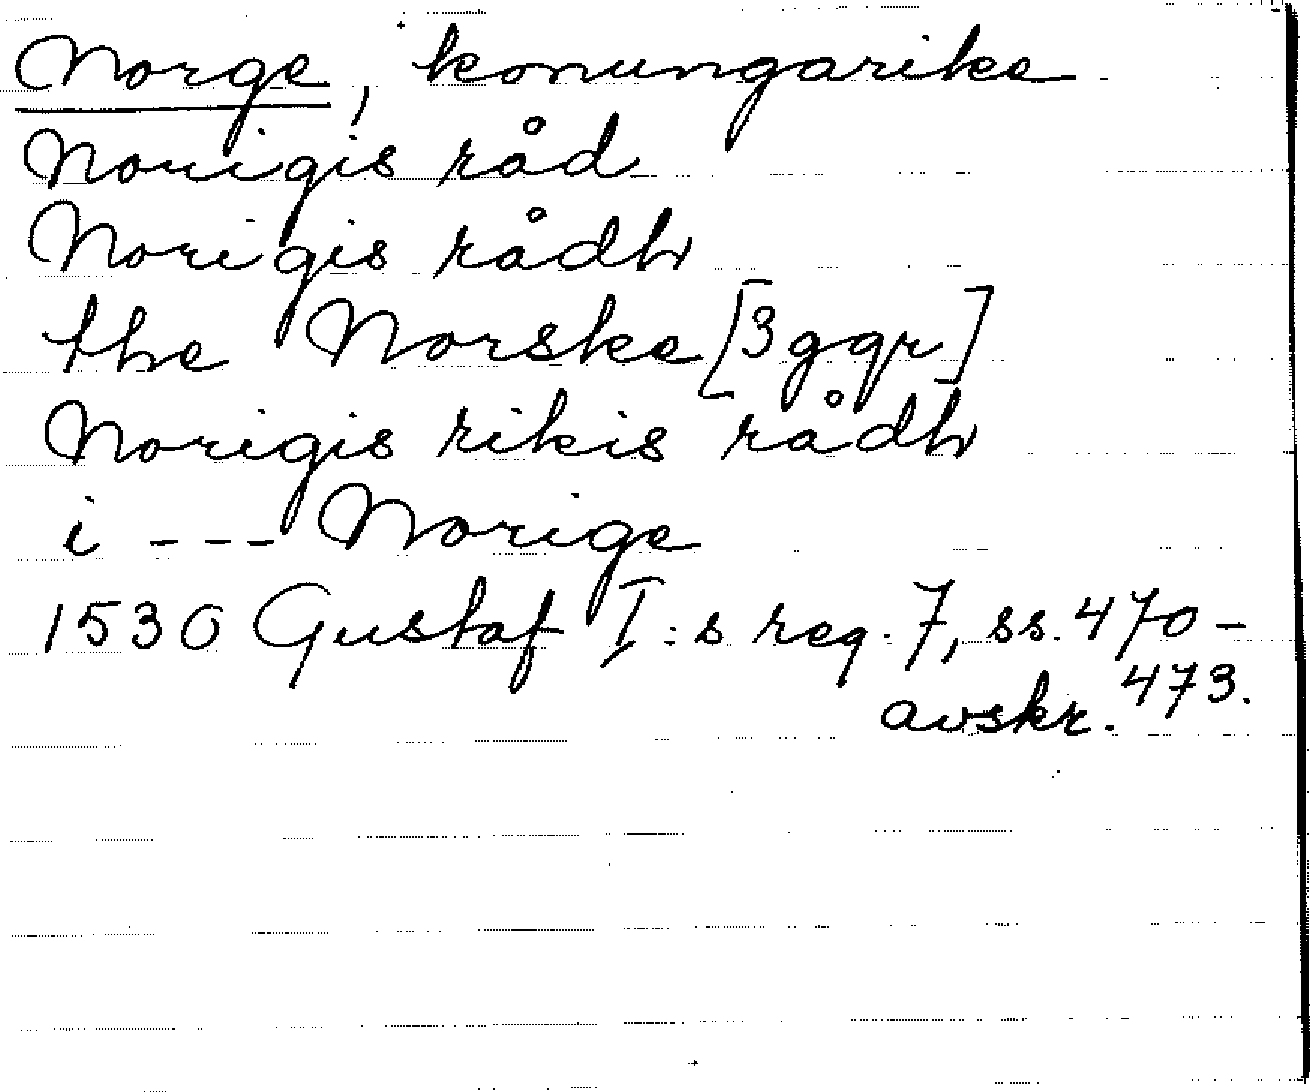 Norge, konungarike
Norigis råd
Norigis rådh
the Norske [3 ggr]
Norigis rikis rådh
i --- Norige
1530 Gustaf I:s reg. 7, ss. 470-
473.
avskr.